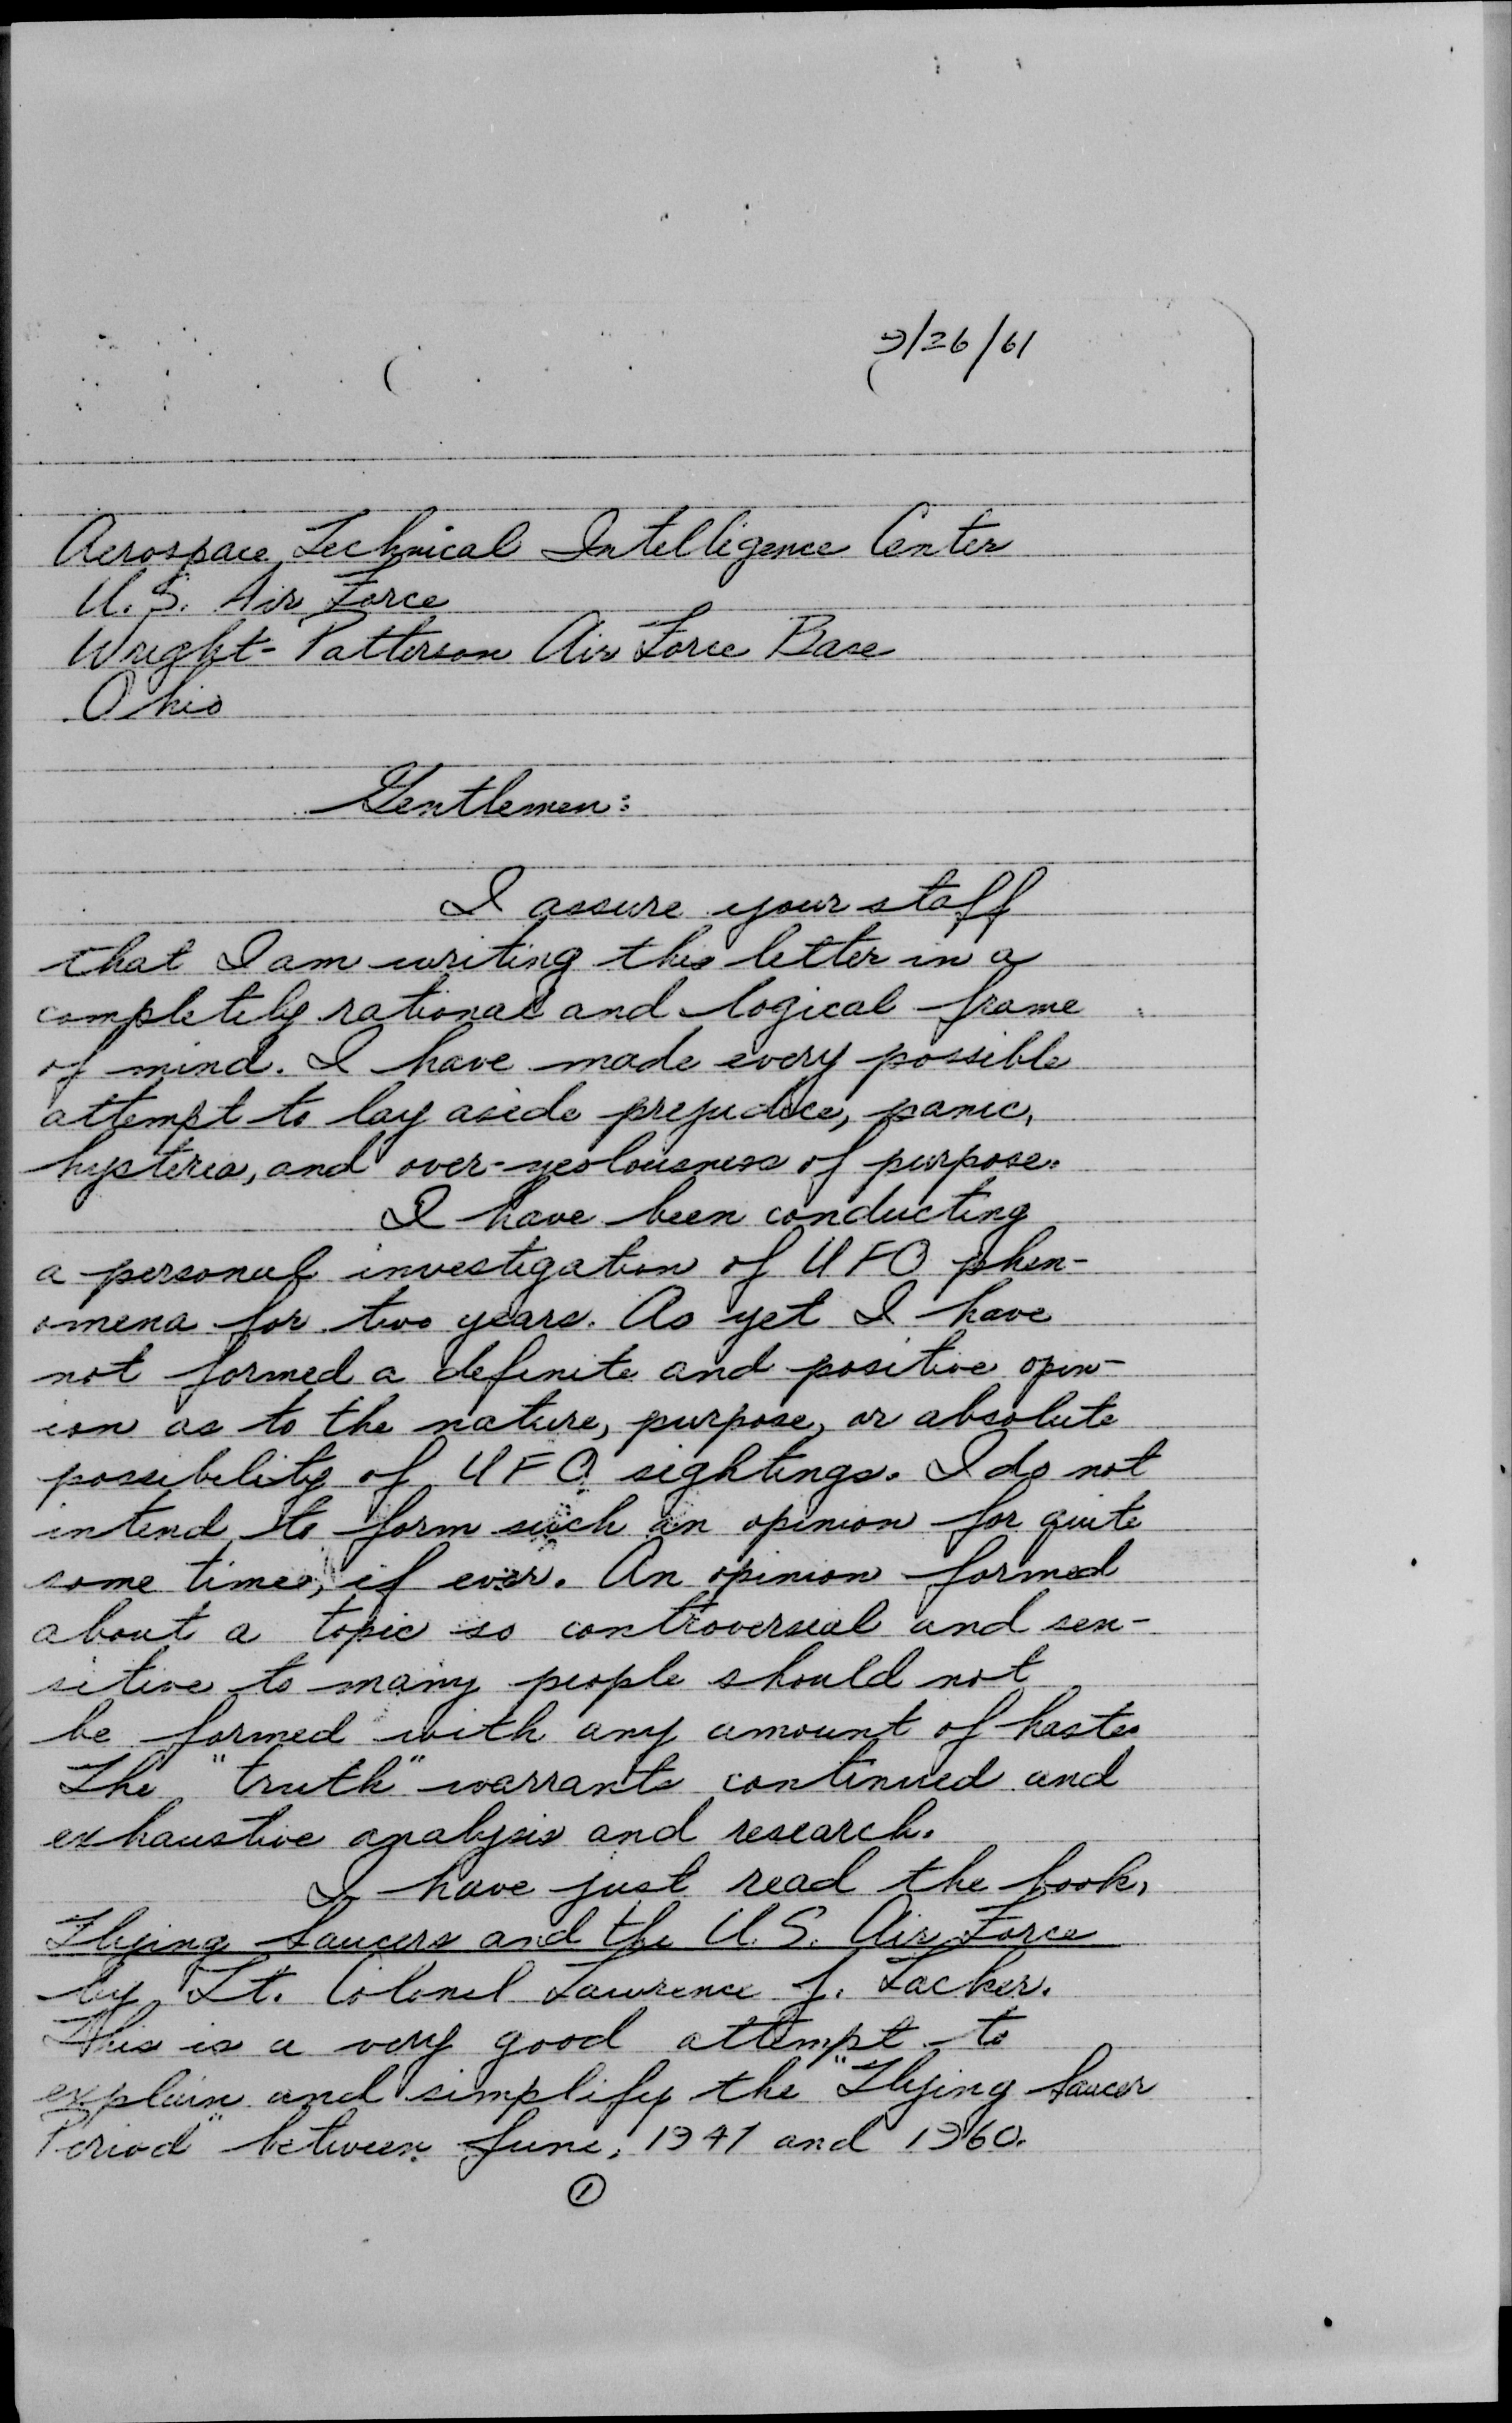 9/26/61
Aerospace Technical Intelligence Center
U.S. Air Force
Wright-Patterson Air Force Base
Ohio
Gentlemen:
I assure your staff
that I am writing this letter in a
completely rational and logical frame
of mind. I have made every possible
attempt to lay aside prejudice, panic,
hysteria, and over-zealousness of purpose.
I have been conducting
a personal investigation of UFO phen-
omena for two years. As yet I have
not formed a definite and positive opin-
ion as to the nature, purpose, or absolute
possibility of UFO sightings. I do not
intend to form such an opinion for quite
some time, if ever. An opinion formed
about a topic so controversial and sen-
sitive to many people should not
be formed with any amount of haste.
The "truth" warrants continued and
exhaustive analysis and research.
I have just read the book,
Flying Saucers and the U.S. Air Force
by Lt. Colonel Lawrence J. Tacker.
This is a very good attempt to
explain and simplify the "Flying Saucer
Period" between June, 1947 and 1960.
1